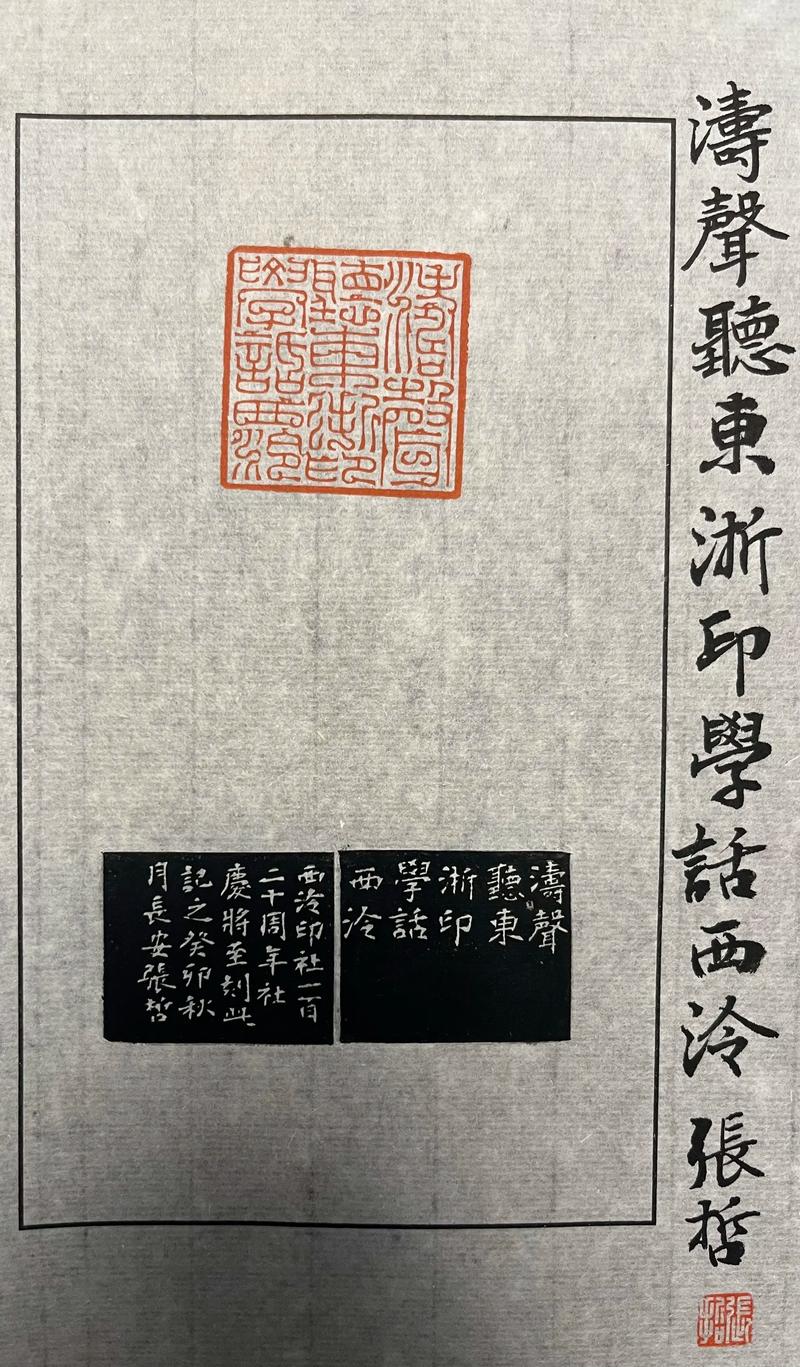 濤聲聽東浙印學話西泠 張哲
張哲
濤聲
聽東浙印
學話西泠
濤聲
聽東
浙印
學話
西泠
西泠印社一百
二十周年社
慶將至刻此
記之癸卯秋
月長安張哲